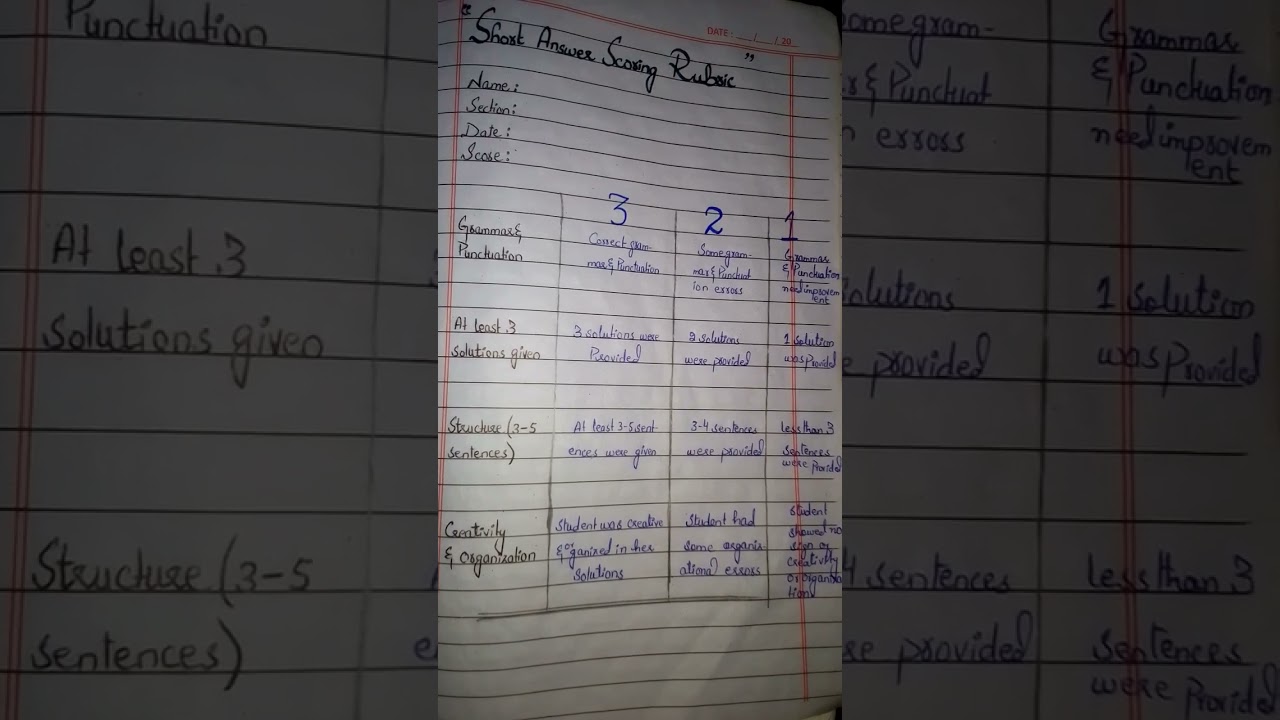 "Short Answer Scoring Rubric"
DATE: __/__/20__
Name:
Section:
Date:
Score:
3 2 1
Grammar &
Punctuation
Correct gram-
mar & Punctuation
Some gram-
mar & Punctuat
ion errors
Grammar
& Punctuation
need improvem
ent
At least 3
solutions given
3 solutions were
Provided
2 solutions
were provided
1 Solution
was Provided
Structure (3-5
sentences)
At least 3-5 sent
ences were given
3-4 sentences
were provided
less than 3
sentences
were Provided
Creativity
& organization
Student was creative
& or organized in her
Solutions
Student had
some organiz
ational errors
student
showed no
sign of
creativity
or organiza
tion
Punctuation
At least 3
solutions given
Structure (3-5
sentences)
e
some gram-
r & Punctuat
n errors
solutions
e provided
4 sentences
re provided
Grammar
& Punctuation
need improvem
ent
1 Solution
was Provided
less than 3
sentences
were Provided